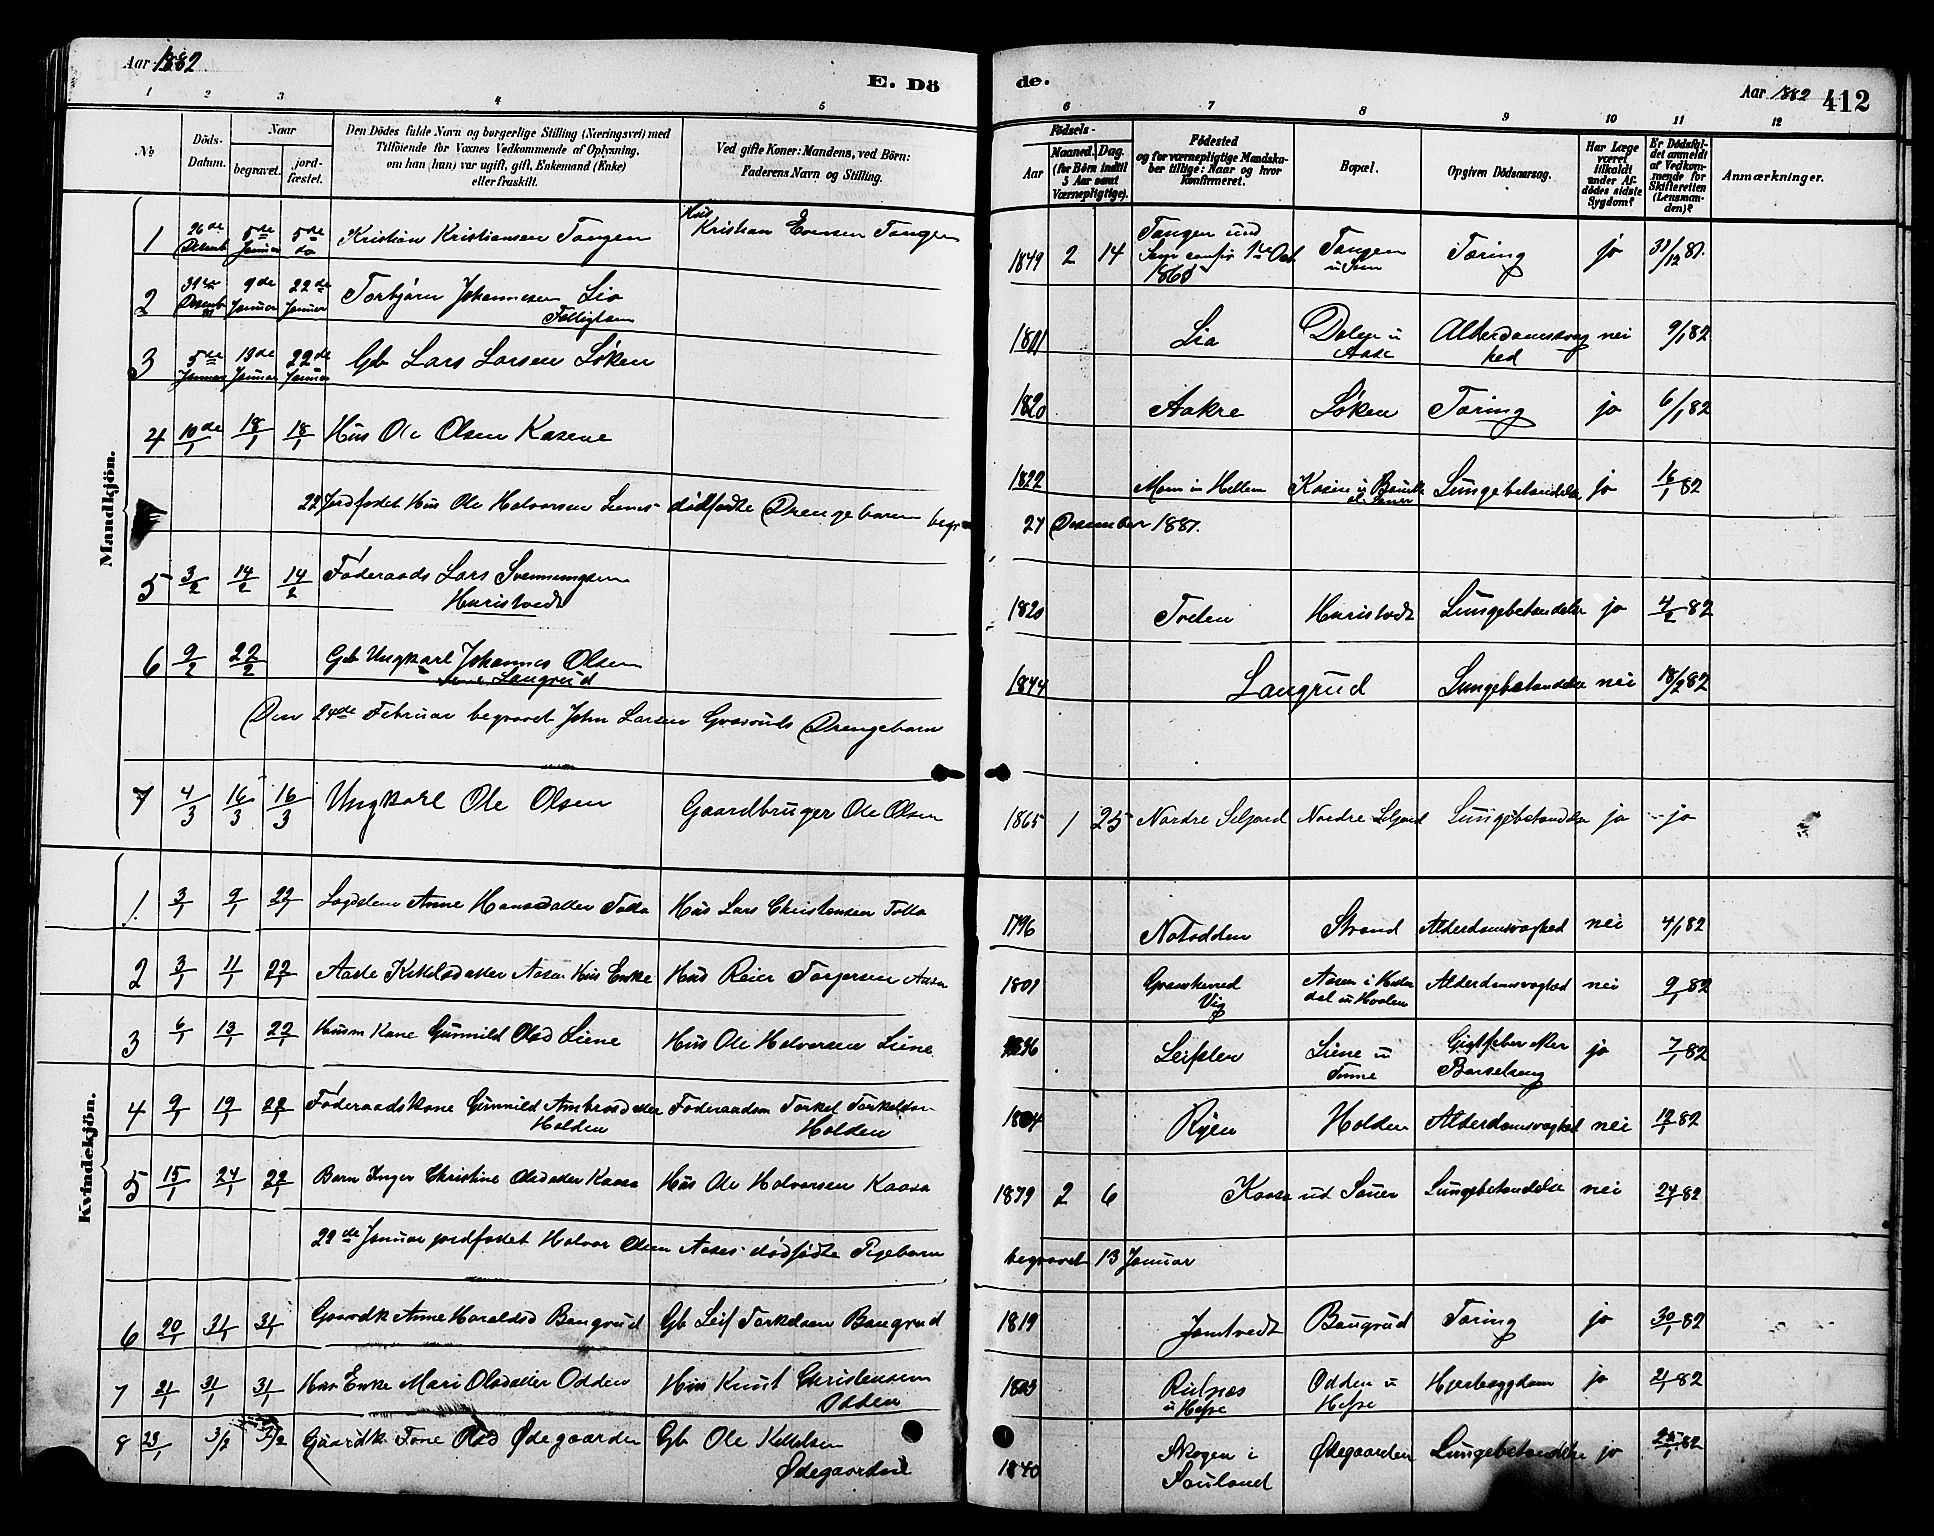 Aar 1882
E. Dö
de.
Aar 1882 412
1 2 3 4 5
6 7 8 9 10 11 12
No
Döds-Datum.
Naar
begravet.
jord-fæstet.
Den Dödes fulde Navn og borgerlige Stilling (Næringsvei) med
Tilföiende for Voxnes Vedkommende af Oplysning,
om han (hun) var ugift, gift, Enkemand (Enke)
eller fraskilt.
Ved gifte Koner: Mandens, ved Börn:
Faderens Navn og Stilling.
Födsels-
Aar
Maaned. Dag.
(for Børn indtil
5 Aar samt
Værnepligtige).
Födested
og for værnepligtige Mandska-
ber tillige: Naar og hvor
konfirmeret.
Bopæl.
Opgiven Dödsaarsag.
Har Læge
været
tilkaldt
under Af-
dödes sidste
Sygdom?
Er Dödsfal-
det anmeldt
af Vedkom-
mende for
Skifteretten
(Lensman-
den)?
Anmærkninger.
Mandkjön.
1 26de Desemb 5de Januar 5de do Kristian Kristiansen Tangen Hus Kristian Evensen Tangen 1849 2 14 Tangen und Tangen Tæring jo 31/12 81.
2 31te Desemb 9de Januar 22de Januar Torbjørn Johannesen Lia Fattiglem 1801 Lia Dalen u Aase Alderdomssvaghed nei 9/1 82
3 5de Januar 19de Januar 22de Januar Gb Lars Larsen Löken 1820 Aakre Löken Tæring jo 6/1 82
4 10de/1 18/1 18/1 Hus Ole Olsen Kasene 1822 Moen u Hellem Kasene u Lungebetændelse jo 16/1 82
22 Jordfæstet Hus Ole Halvorsen Lienes dödfödte Drengebarn begr 27 Desember 1881.
5 3/2 14/2 14/2 Föderaads Lars Svenningsen Haristvedt 1820 Tveten Haristvedt Lungebetændelse jo 4/2 82
6 9/2 22/2 Gb Ungkarl Johannes Olsen Langrud 1844 Langrud Lungebetændelse nei 18/2 82
Den 24de Februar begravet John Larsen Grasruds Drengebarn
7 4/3 16/3 16/3 Ungkarl Ole Olsen Gaardbruger Ole Olsen 1865 1 25 Nordre Seljord Nordre Seljord Lungebetændelse jo jo
Kvindekjön.
1. 3/1 9/1 22/1 Anne Hansdatter Tolla Hus Lars Christensen Tolla 1796 Notodden Strand Alderdomsvaghed nei 4/1 82
2 3/1 11/1 22/1 Aaste Kittelsdatter Aasen Hus Enke Hus Reier Torgersen Aasen 1801 Granshered Aasen i Alderdomsvaghed nei 9/1 82
3 6/1 13/1 22/1 Husm Kone Gunnild Olsd Liene Hus Ole Halvorsen Liene Leifslen Liene u Tinne Gigtfeber efter Barselseng jo 7/1 82
4 9/1 19/1 22/1 Föderaadskone Gunnild Ambrosdatter Holden Föderaadsm Torkel Torkelsen Holden 1804 Ryen Holden Alderdomsvaghed nei 12/1 82
5 15/1 24/1 22/1 Barn Inger Christine Olsdatter Kaasa Hus Ole Halvorsen Kaasa 1879 2 6 Kaasa ud Sauer Lungebetændelse nei 24/1 82
22de Januar jordfæstet Halvor Olsen Aases dødfødte Pigebarn begravet 13 Januar
6 20/1 31/1 31/1 Gaardk Anne Haraldsd Bangrud Gb Leif Torkelsen Bangrud 1819 Jamtvedt Bangrud Tæring jo 30/1 82
7 21/1 31/1 31/1 Hus Enke Mari Olsdatter Odden Hus Knut Christensen Odden 1803 Rudnæs u Hefre Odden u Hefre Hjertesygdom jo 21/1 82
8 23/1 3/2 3/2 Gaardk. Tone Olsd Ødegaarden Gb Ole Kittelsen Ødegaarden 1840 Skogen i Sauland Ødegaarden Lungebetændelse jo 25/1 82